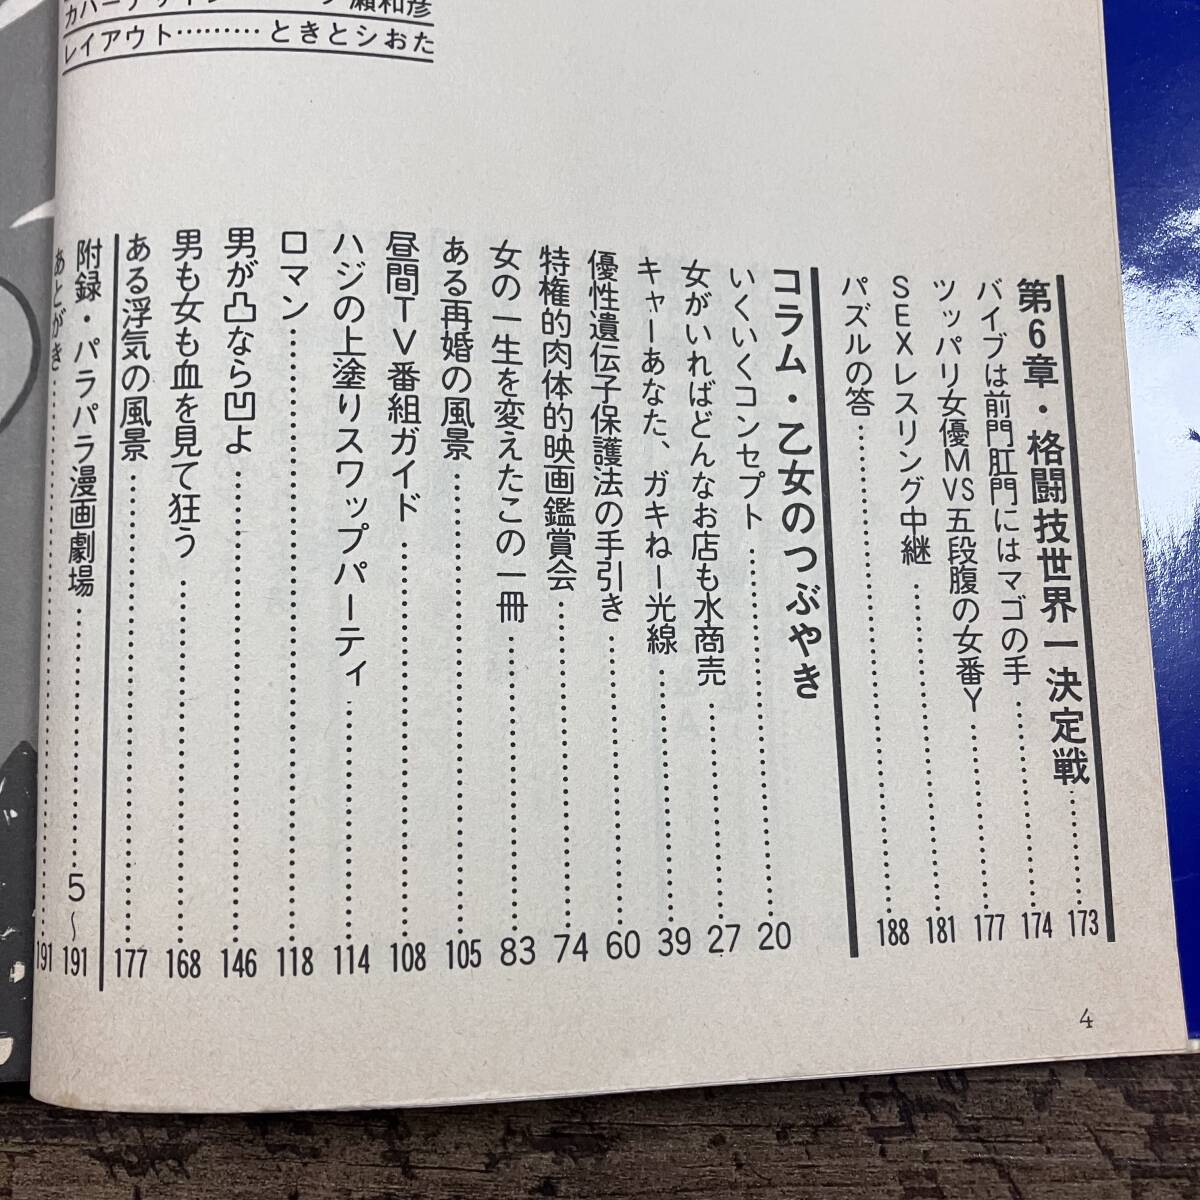 第6章・格闘技世界一決定戦……173
バイブは前門肛門にはマゴの手……174
ツッパリ女優MVS五段腹の女番Y……177
SEXレスリング中継……181
パズルの答……188
コラム・乙女のつぶやき
いくいくコンセプト……20
女がいればどんなお店も水商売……27
キャーあなた、ガキねー光線……39
優性遺伝子保護法の手引き……60
特権的肉体的映画鑑賞会……74
女の一生を変えたこの一冊……83
ある再婚の風景……105
昼間TV番組ガイド……108
ハジの上塗りスワップパーティ……114
ロマン……118
男が凸なら凹よ……146
男も女も血を見て狂う……168
ある浮気の風景……177
附録・パラパラ漫画劇場……5〜191
あとがき……191
瀬和彦
レイアウト………ときとシおた
4